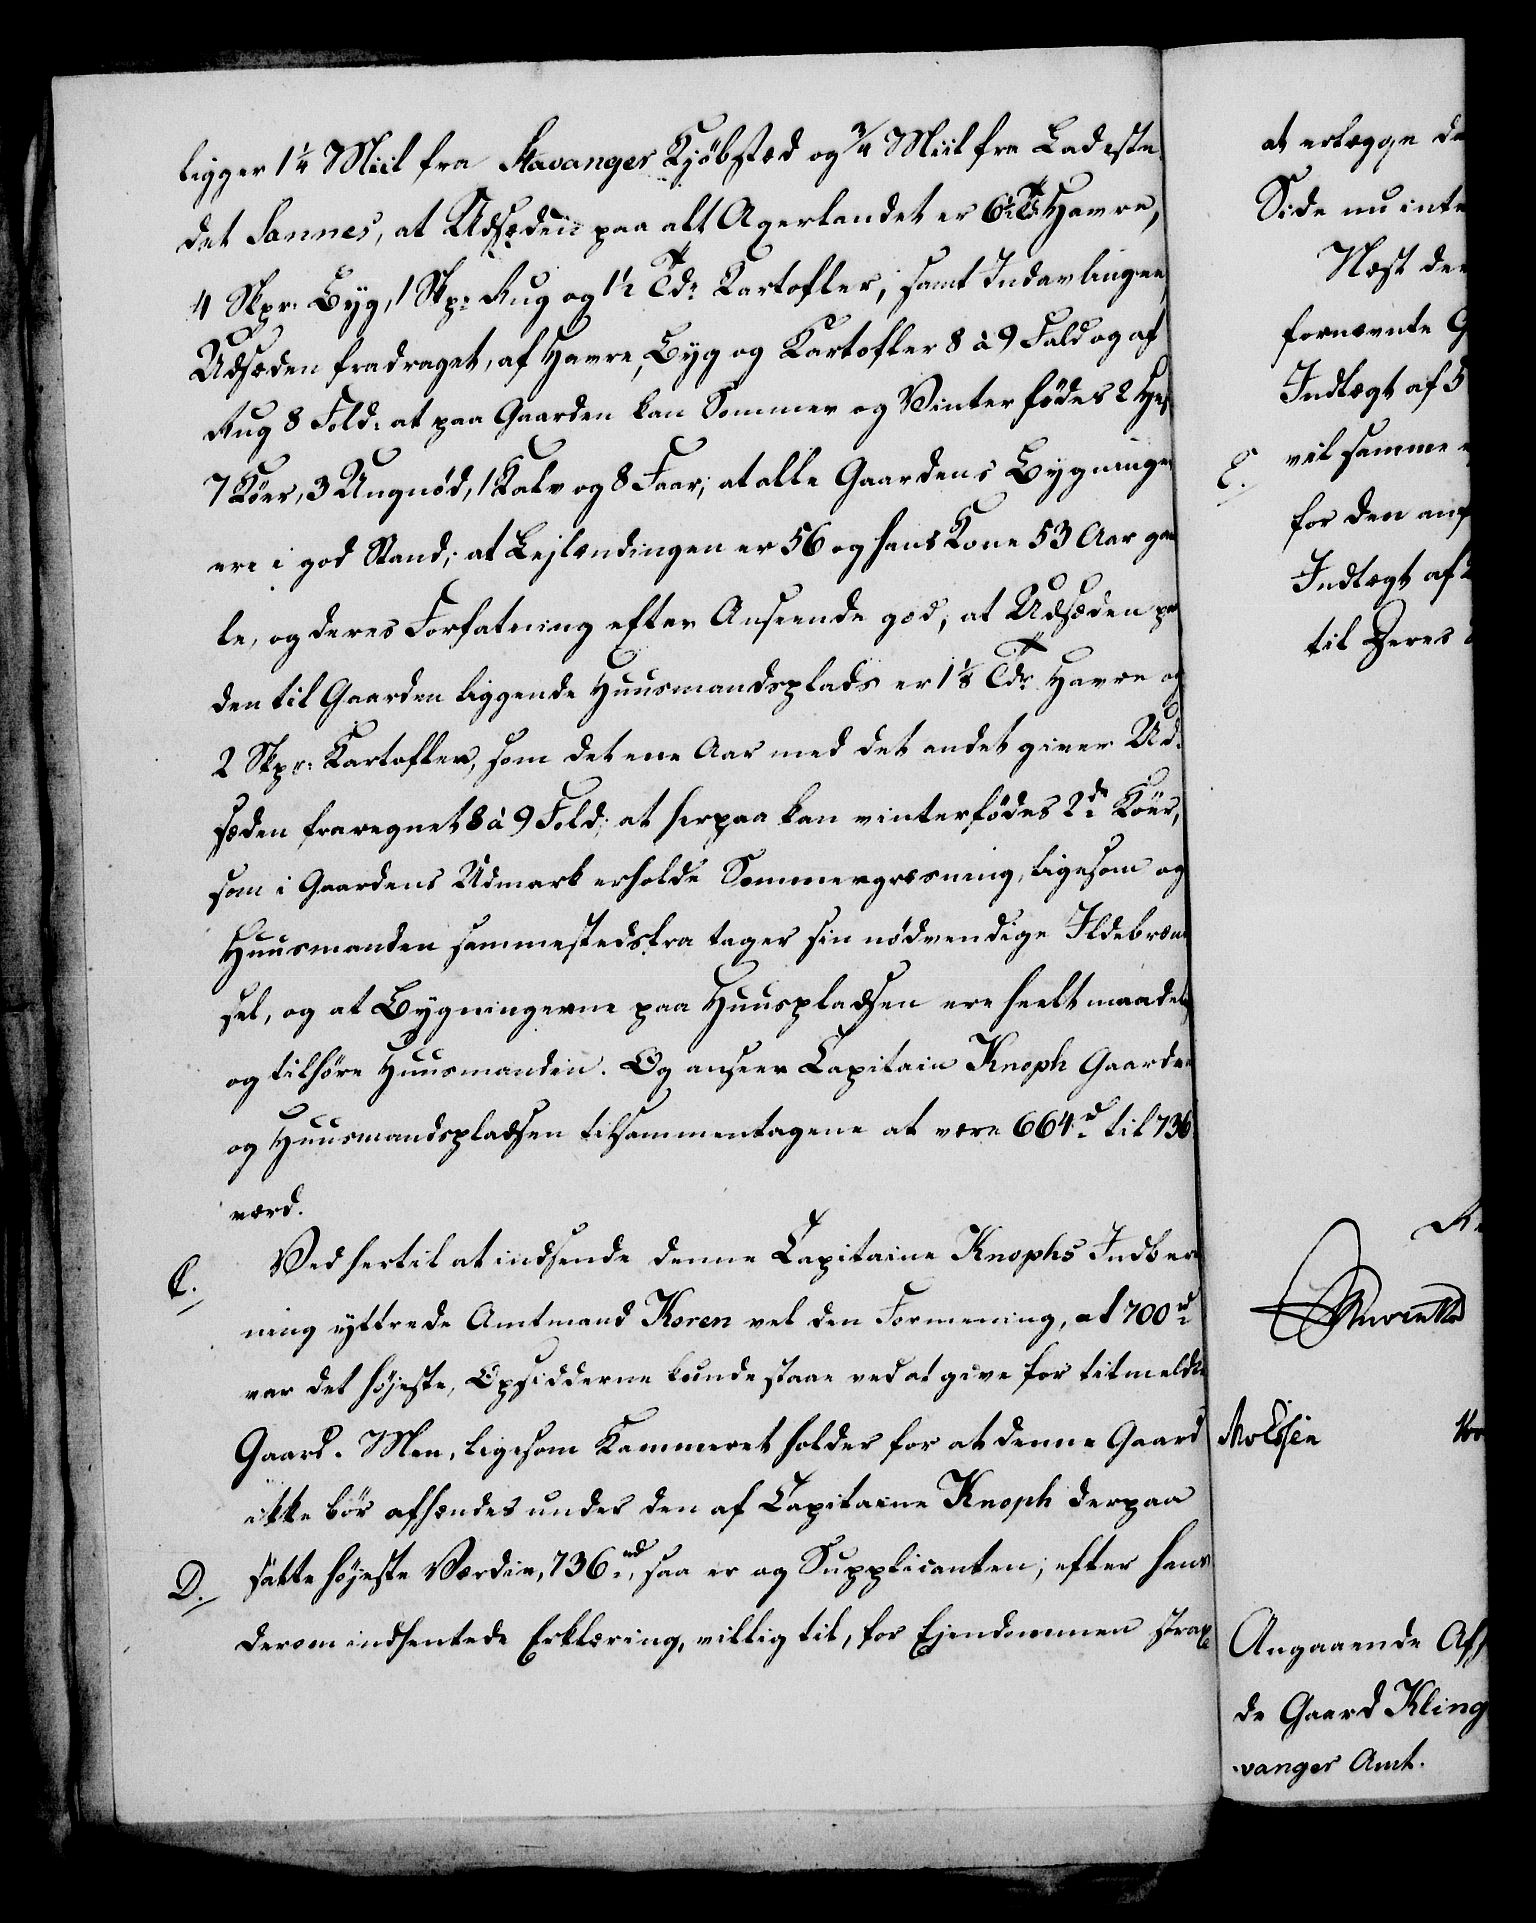 ligger 1¼ Miil fra Stavanger Kjöbsted og ¾ Miil fra Ladeste-
det Sannes, at Udsæden paa alt Agerlandet er 6½ Td Havre,
4 Skpr: Byg, 1 Skp: Rug og 1½ Tdr Kartofler, samt Indavlingen,
Udsæden fradraget, af Havre, Byg og Kartofler 8 à 9 Fold og af
Rug 8 Fold: at paa Gaarden kan Sommer og Vinter födes 2 Hes
7 Köer, 3 Ungnöd, 1 Kalv og 8 Faar; at alle Gaardens Bygninger
ere i god Stand; at Lejlændingen er 56 og hans Kone 53 Aar gam
le, og deres Forfatning efter Anseende god; at Udsæden paa
den til Gaarden liggende Huusmandsplads er 1⅛ Tdr Havre og
2 Skpr: Kartofler, som det ene Aar med det andet giver Ud-
sæden fraregnet 8 à 9 Fold; at herpaa kan vinterfödes 2de Köer,
som i Gaardens Udmark erholde Sommergræsning, ligesom og
Huusmanden sammestedsfra tager sin nödvendige Ildebrænd
sel, og at Bygningerne paa Huuspladsen ere heelt maadelige
og tilhöre Huusmanden. Og anseer Capitain Knoph Gaarden
og Huusmandspladsen tilsammentagene at være 664 rd til 736
værd.
C. Ved hertil at indsende denne Capitaine Knophs Indberet
ning yttrede Amtmand Koren vel den Formening, at 700 rd
var det höjeste, Opsidderne kunde staae ved at give for titmeldte
Gaard. Men, ligesom Kammeret holder for at denne Gaard
ikke bör afhændes under den af Capitaine Knoph derpaa
D. satte höjeste Værdie, 736 rd, saa er og Supplicanten, efter hans
derom indhentede Erklæring, villig til, for Ejendommen strax
at erlægge de
Side nu inte
Næst der
fornævnte G
Indtægt af 5
E. vil samme
for den anf
Indtægt af
til Deres
Angaaende Afh
de Gaard Kling
vanger Amt.